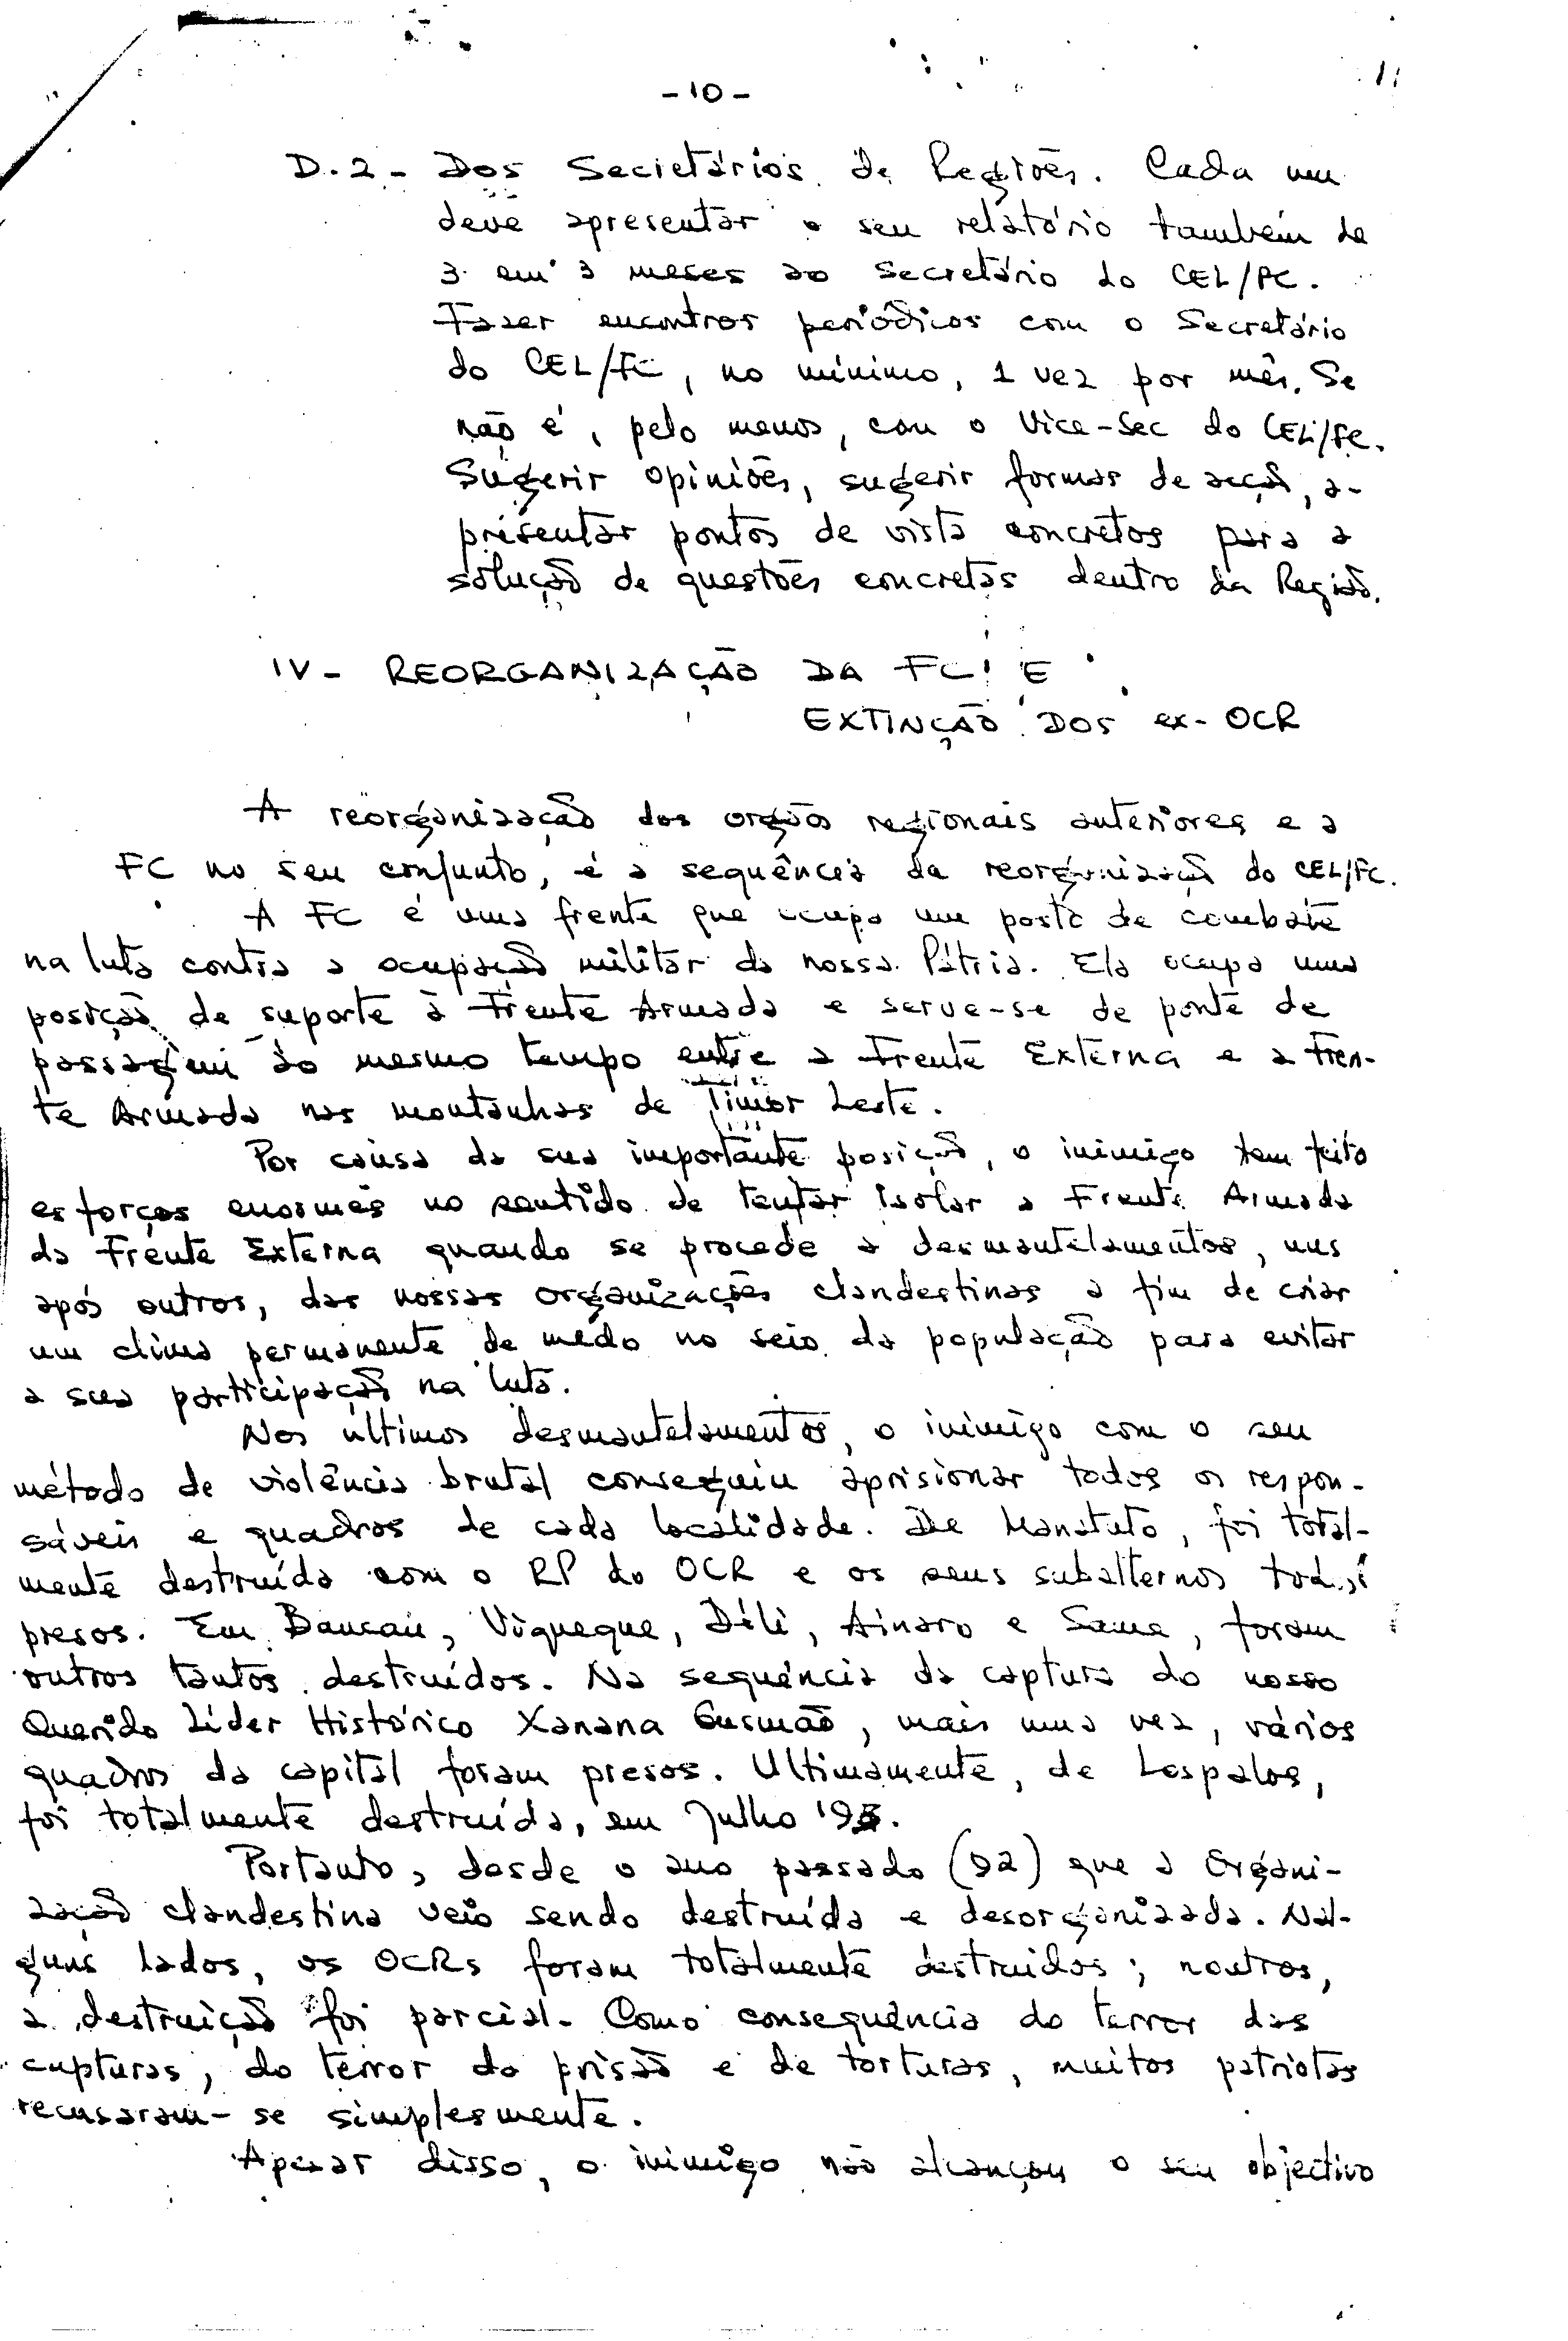 11
- 10 -
D.2 - Dos Secretários de Regiões. Cada um
deve apresentar o seu relatório também de
3 em 3 meses ao Secretário do CEL/FC.
Fazer encontros periódicos com o Secretário
do CEL/FC, no mínimo, 1 vez por mês. Se
não é, pelo menos, com o Vice-Sec do CEL/FC.
Sugerir opiniões, sugerir formas de acção, a-
presentar pontos de vista concretos para a
solução de questões concretas dentro da Região.
IV - REORGANIZAÇÃO DA FC E
EXTINÇÃO DOS ex-OCR
A reorganização dos orgãos regionais anteriores e a
FC no seu conjunto, é a sequência da reorganização do CEL/FC.
A FC é uma frente que ocupa um posto de combate
na luta contra a ocupação militar da nossa Pátria. Ela ocupa uma
posição de suporte à Frente Armada e serve-se de ponte de
passagem ao mesmo tempo entre a Frente Externa e a Fren-
te Armada nas montanhas de Timor Leste.
Por causa da sua importante posição, o inimigo tem feito
esforços enormes no sentido de tentar isolar a Frente Armada
da Frente Externa quando se procede a desmantelamentos, uns
após outros, das nossas organizações clandestinas a fim de criar
um clima permanente de medo no seio da população para evitar
a sua participação na luta.
Nos últimos desmantelamentos, o inimigo com o seu
método de violência brutal conseguiu aprisionar todos os respon-
sáveis e quadros de cada localidade. De Manatuto, foi total-
mente destruída com o RP do OCR e os seus subalternos todos
presos. Em Baucau, Viqueque, Díli, Ainaro e Same, foram
outros tantos destruídos. Na sequência da captura do nosso
Querido Líder Histórico Xanana Gusmão, mais uma vez, vários
quadros da capital foram presos. Ultimamente, de Lospalos,
foi totalmente destruída, em Julho '93.
Portanto, desde o ano passado (92) que a Organi-
zação clandestina veio sendo destruída e desorganizada. Nal-
guns lados, os OCRs foram totalmente destruidos; noutros,
a destruição foi parcial. Como consequência do terror das
capturas, do terror da prisão e de torturas, muitos patriotas
recusaram-se simplesmente.
Apesar disso, o inimigo não alcançou o seu objectivo